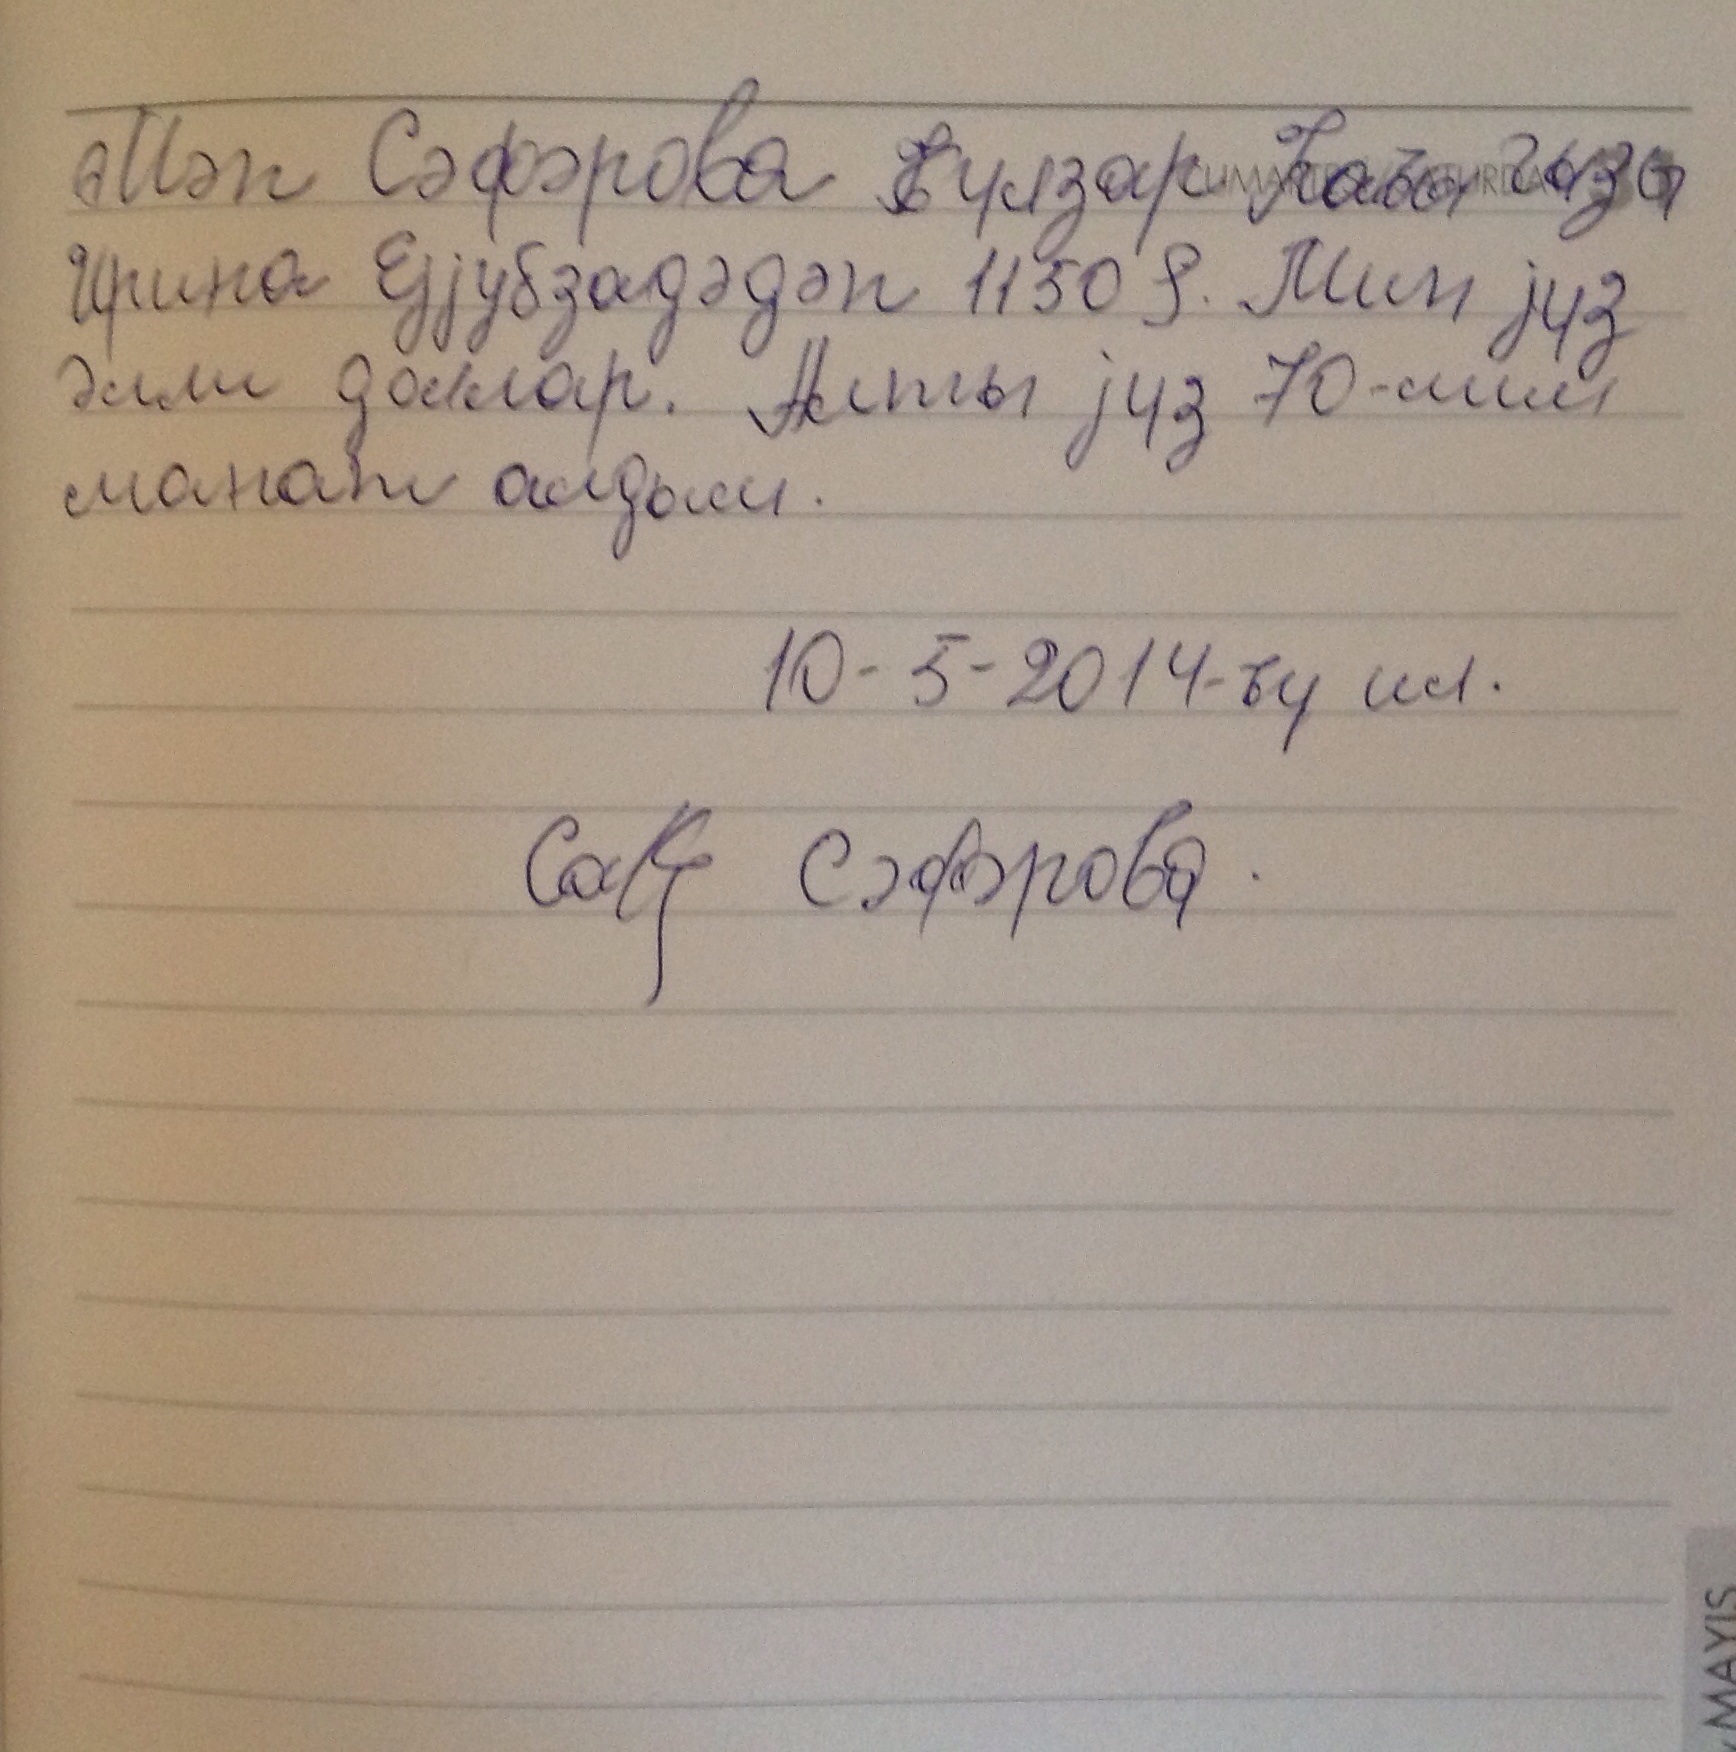 Мән Сәфәрова Ҝүлзар Һаҹы гызы
Ирина Ејјубзадәдән 1150 $. Мин јүз
әлли доллар. Алты јүз 70-мим
манат алдым.
10-5-2014-ҹү ил.
Сәфәрова.
MAYIS